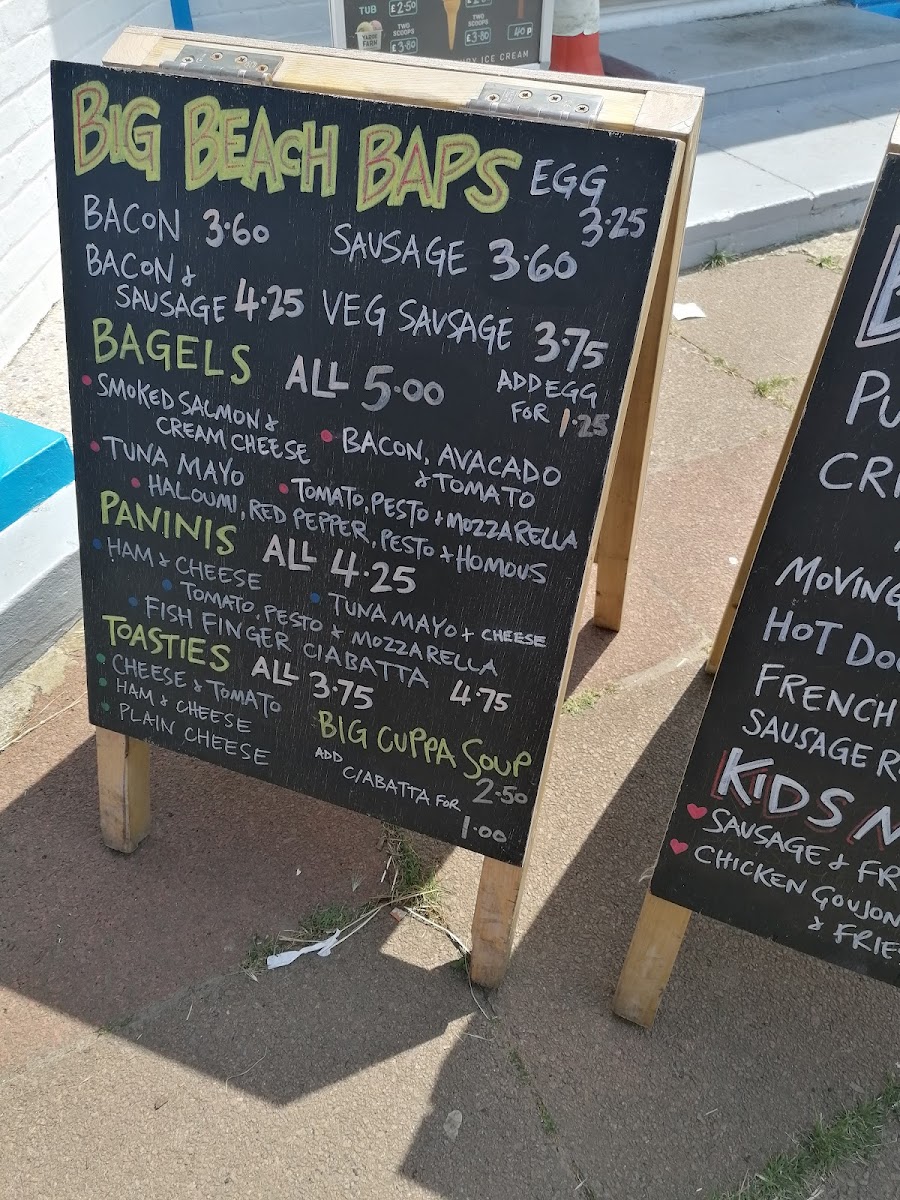 TUB £2.50
TWO SCOOPS £3.80
TWO SCOOPS £3.80
40P
ICE CREAM
BIG BEACH BAPS
EGG 3.25
BACON 3.60
SAUSAGE 3.60
BACON &
SAUSAGE 4.25
VEG SAUSAGE 3.75
ADD EGG
FOR 1.25
BAGELS ALL 5.00
SMOKED SALMON &
CREAM CHEESE
BACON, AVACADO
& TOMATO
TUNA MAYO
TOMATO, PESTO & MOZZARELLA
HALOUMI, RED PEPPER, PESTO & HOMOUS
PANINIS ALL 4.25
HAM & CHEESE
TUNA MAYO + CHEESE
TOMATO, PESTO & MOZZARELLA
FISH FINGER CIABATTA 4.75
TOASTIES ALL 3.75
CHEESE & TOMATO
HAM & CHEESE
PLAIN CHEESE
BIG CUPPA SOUP
2.50
ADD
CIABATTA FOR
1.00
MOVING
FRENCH
SAUSAGE
KIDS
SAUSAGE & FR
CHICKEN GOUJON
& FRIE